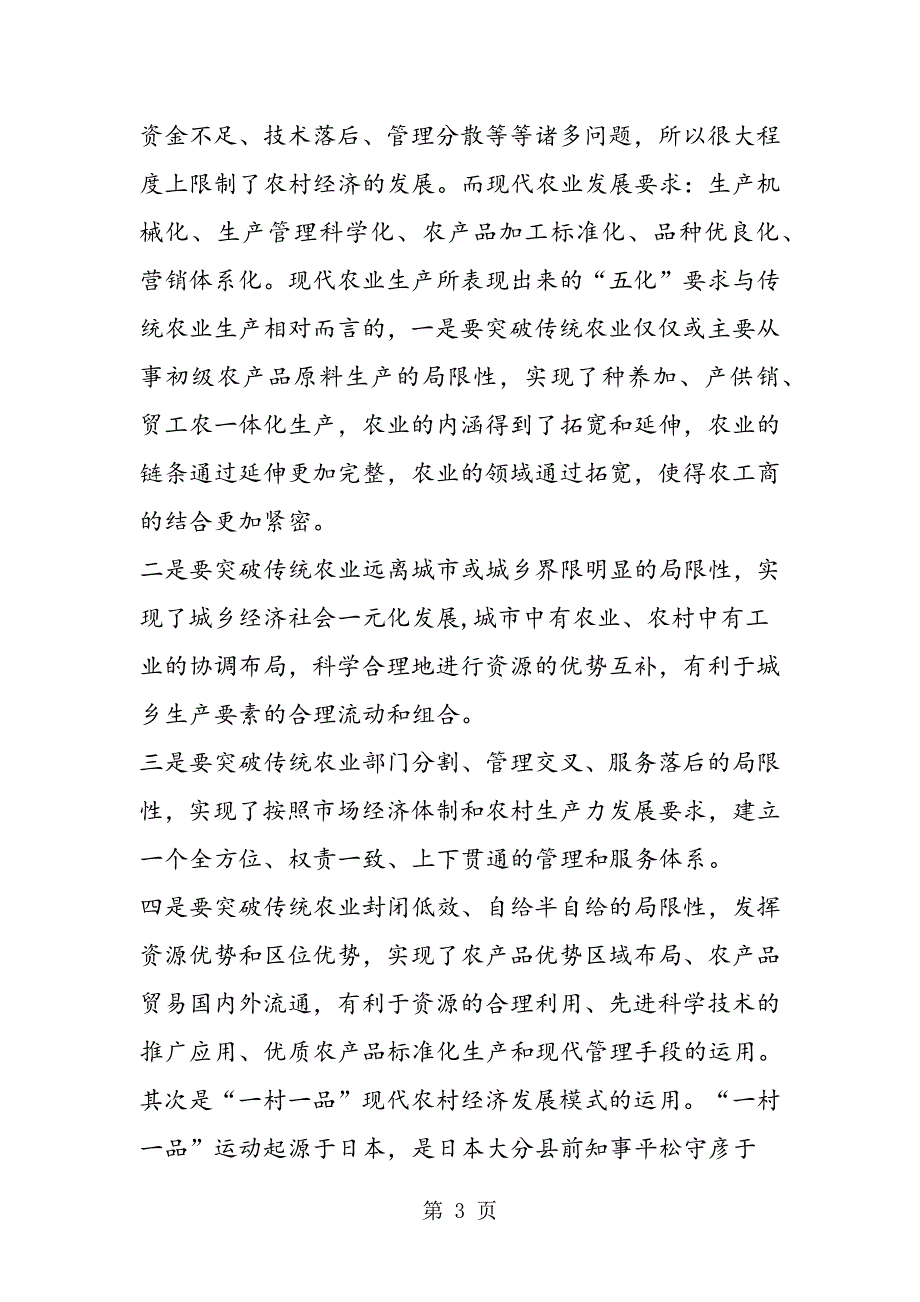 资金不足、技术落后、管理分散等等诸多问题，所以很大程
度上限制了农村经济的发展。而现代农业发展要求：生产机
械化、生产管理科学化、农产品加工标准化、品种优良化、
营销体系化。现代农业生产所表现出来的“五化”要求与传
统农业生产相对而言的，一是要突破传统农业仅仅或主要从
事初级农产品原料生产的局限性，实现了种养加、产供销、
贸工农一体化生产，农业的内涵得到了拓宽和延伸，农业的
链条通过延伸更加完整，农业的领域通过拓宽，使得农工商
的结合更加紧密。
二是要突破传统农业远离城市或城乡界限明显的局限性，实
现了城乡经济社会一元化发展,城市中有农业、农村中有工
业的协调布局，科学合理地进行资源的优势互补，有利于城
乡生产要素的合理流动和组合。
三是要突破传统农业部门分割、管理交叉、服务落后的局限
性，实现了按照市场经济体制和农村生产力发展要求，建立
一个全方位、权责一致、上下贯通的管理和服务体系。
四是要突破传统农业封闭低效、自给半自给的局限性，发挥
资源优势和区位优势，实现了农产品优势区域布局、农产品
贸易国内外流通，有利于资源的合理利用、先进科学技术的
推广应用、优质农产品标准化生产和现代管理手段的运用。
其次是“一村一品”现代农村经济发展模式的运用。“一村
一品”运动起源于日本，是日本大分县前知事平松守彦于
第 3 页